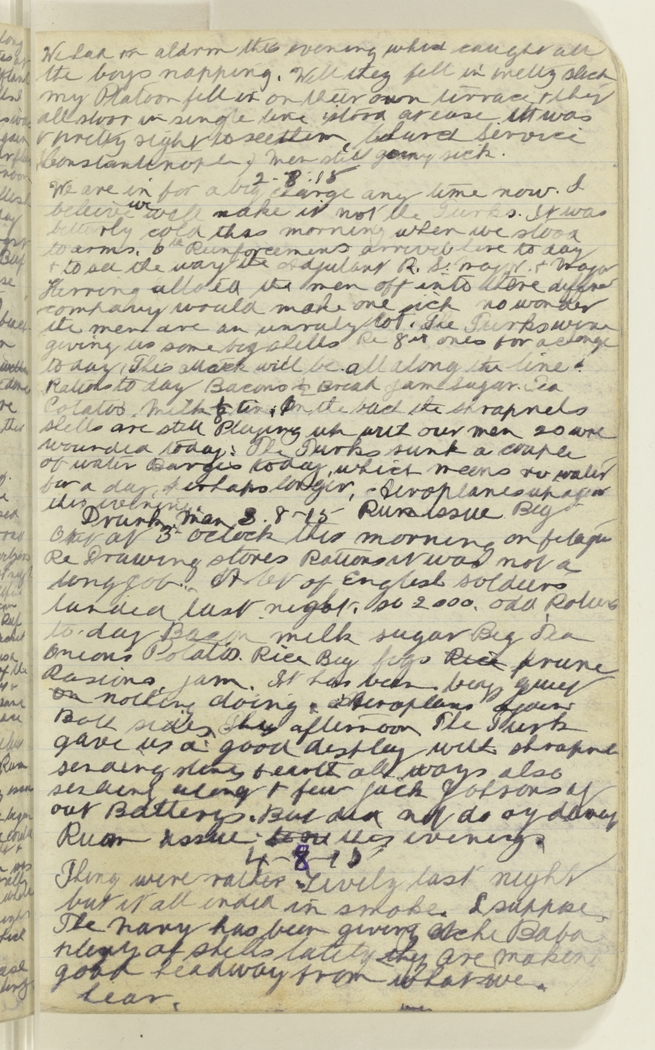 We had an alarm this evening which caught all
the boys napping. Well they fell in pretty slick
my Platoon fell in on their own terrace & they
all stood in single line stood at ease. It was
a pretty sight to see them Church Service
Constantinople men still going sick.
2-8-15
We are in for a big charge any time now. I
believe we will make it not the Turks. It was
bitterly cold this morning when we stood
to arms. 6th Reinforcements arrived here to day
& to see the way the Adjutant R. S. major & Major
Herring alloted the men off into there different
company would make one sick no wonder
the men are an unruly lot. The Turks were
giving us some big shells Re 8 in ones for a change
to day. This attack will be all along the line.
Rations to day Bacon Bread jam sugar Tea
Potatos. Milk tin. In the the shrapnels
shells are still Playing up with our men 20 were
wounded today: The Turks sunk a couple
of water Barges today, which means no water
for a day, perhaps longer, Aeroplanes up again
this evening.
Drunk Man 3.8-15 Rum issue Big
at 3 oclock this morning on fatigue
Re Drawing stores Rations it was not a
long job. A lot of English soldiers
landed last night. so 2000. odd Rations
to-day Bacon milk sugar Big Tea
Onions Potatos. Rice Big figs Rice prune
Rasions jam. It has been very quiet
on nothing doing. Aeroplans again
Both sides, this afternoon The Turk
gave us a good display with shrapnel
sending stones & earth all ways also
sending along a few Jack Johnsons at
out Batterys. But did not do any damage
Rum issue this evening.
4-8-15
Thing were rather Lively last night
but it all ended in smoke. I suppose.
The navy has been giving Atchi Baba
plenty of shells lately they are making
good headway from what we
hear.